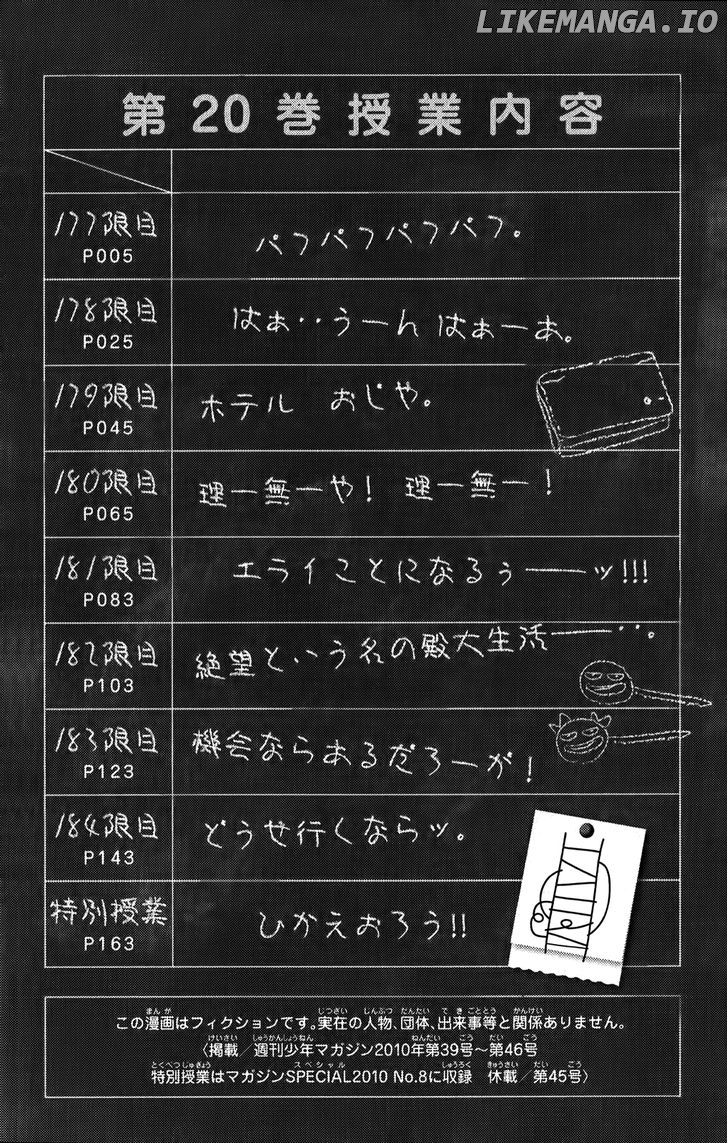 LIKEMANGA.IO
第20巻授業内容
177限目
P005
パフパフパフパフ。
178限目
P025
はぁ‥うーん はぁーあ。
179限目
P045
ホテル おじや。
180限目
P065
理一無一や! 理一無一!
181限目
P083
エライことになるぅ――ッ!!!
182限目
P103
絶望という名の殿大生活――‥。
183限目
P123
機会ならあるだろーが!
184限目
P143
どうせ行くならッ。
特別授業
P163
ひかえおろう!!
この漫画はフィクションです。実在の人物、団体、出来事等と関係ありません。
〈掲載／週刊少年マガジン2010年第39号～第46号
特別授業はマガジンSPECIAL2010 No.8に収録 休載／第45号〉